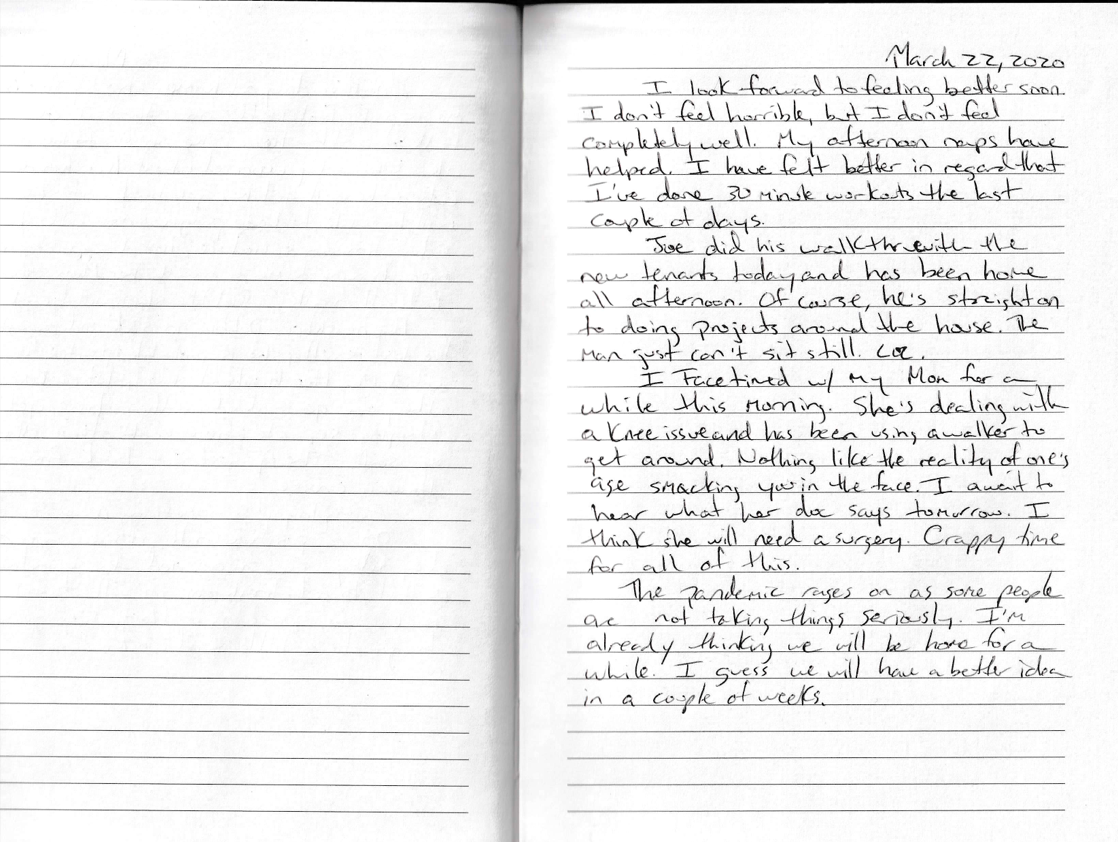 March 22, 2020
I look forward to feeling better soon.
I don't feel horrible, but I don't feel
completely well. My afternoon naps have
helped. I have felt better in regard that
I've done 30 minute workouts the last
couple of days.
Joe did his walkthru with the
new tenants today and has been home
all afternoon. Of course, he's straight on
to doing projects around the house. The
man just can't sit still. LOL.
I Facetimed w/ my Mom for a
while this morning. She's dealing with
a knee issue and has been using a walker to
get around. Nothing like the reality of one's
age smacking you in the face. I await to
hear what her doc says tomorrow. I
think she will need a surgery. Crappy time
for all of this.
The pandemic rages on as some people
are not taking things seriously. I'm
already thinking we will be home for a
while. I guess we will have a better idea
in a couple of weeks.